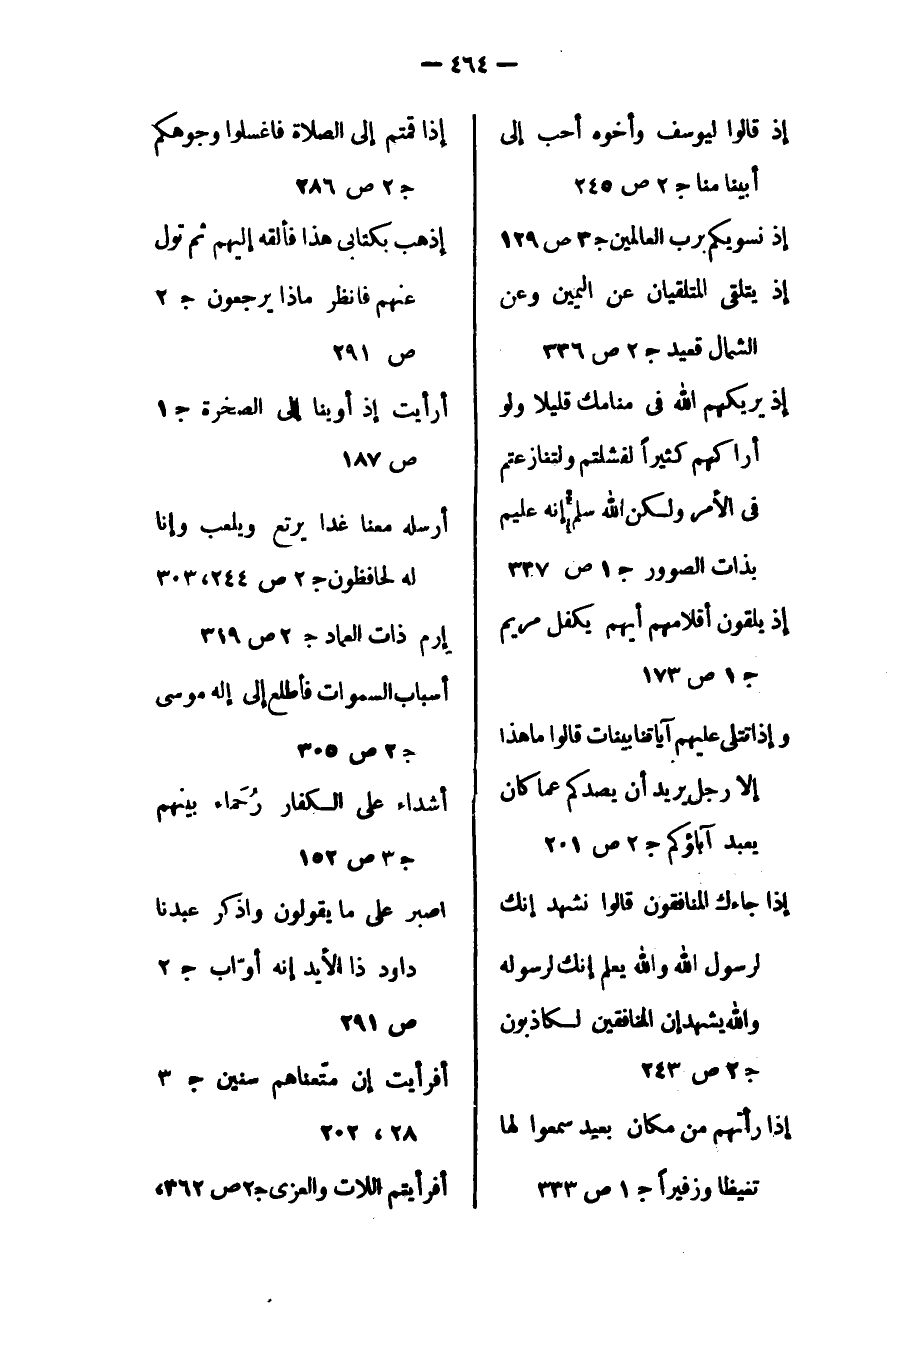 — ٤٦٤ —
إذ قالوا ليوسف وأخوه أحب إلى
أبينا منا ج ٢ ص ٢٤٥
إذ نسويكم برب العالمين ج ٣ ص ١٢٩
إذ يتلقى المتلقيان عن اليمين وعن
الشمال قعيد ج ٢ ص ٣٣٦
إذ يريكهم الله فى منامك قليلا ولو
أراكهم كثيراً لفشلتم ولتنازعتم
فى الأمر ولكن الله سلم إنه عليم
بذات الصوور ج ١ ص ٣٣٧
إذ يلقون أقلامهم أيهم يكفل مريم
ج ١ ص ١٧٣
وإذا تتلى عليهم آياتنا بينات قالوا ما هذا
إلا رجل يريد أن يصدكم عما كان
يعبد آباؤكم ج ٢ ص ٢٠١
إذا جاءك المنافقون قالوا نشهد إنك
لرسول الله والله يعلم إنك لرسوله
والله يشهد إن المنافقين لكاذبون
ج ٢ ص ٢٤٣
إذا رأتهم من مكان بعيد سمعوا لها
تغيظا وزفيراً ج ١ ص ٣٣٣
إذا قمتم إلى الصلاة فاغسلوا وجوهكم
ج ٢ ص ٢٨٦
إذهب بكتابى هذا فألقه إليهم ثم تول
عنهم فانظر ماذا يرجعون ج ٢
ص ٢٩١
أرأيت إذ أوينا إلى الصخرة ج ١
ص ١٨٧
أرسله معنا غدا يرتع ويلعب وإنا
له لحافظون ج ٢ ص ٢٤٤، ٣٠٣
إرم ذات العماد ج ٢ ص ٣١٩
أسباب السموات فأطلع إلى إله موسى
ج ٢ ص ٣٠٥
أشداء على الكفار رُحَماء بينهم
ج ٣ ص ١٥٢
اصبر على ما يقولون واذكر عبدنا
داود ذا الأيد إنه أوّاب ج ٢
ص ٢٩١
أفرأيت إن متّعناهم سنين ج ٣
٢٨، ٢٠٢
أفرأيتم اللات والعزى ج ٢ ص ٣٦٢،